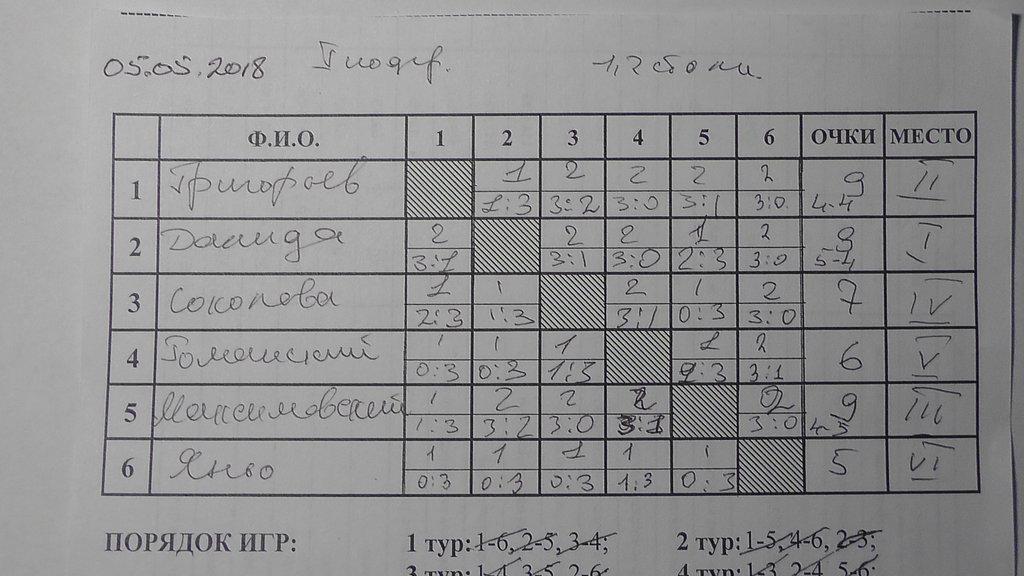 05.05.2018 1,2 столы.
Ф.И.О. 1 2 3 4 5 6 ОЧКИ МЕСТО
1 Григорьев 1 2 2 2 2 9 II
1:3 3:2 3:0 3:1 3:0 4-4
2 Далида 2 2 2 1 2 9 I
3:1 3:1 3:0 2:3 3:0 5-4
3 Соколова 1 1 2 1 2 7 IV
2:3 1:3 3:1 0:3 3:0
4 Романский 1 1 1 1 2 6 V
0:3 0:3 1:3 2:3 3:1
5 Максимовский 1 2 2 2 2 9 III
1:3 3:2 3:0 3:0 4-5
6 Яньо 1 1 1 1 1 5 VI
0:3 0:3 0:3 1:3 0:3
ПОРЯДОК ИГР: 1 тур: 1-6, 2-5, 3-4; 2 тур: 1-5, 4-6, 2-3;
3 тур: 1-4, 3-5, 2-6; 4 тур: 1-3, 2-4, 5-6;